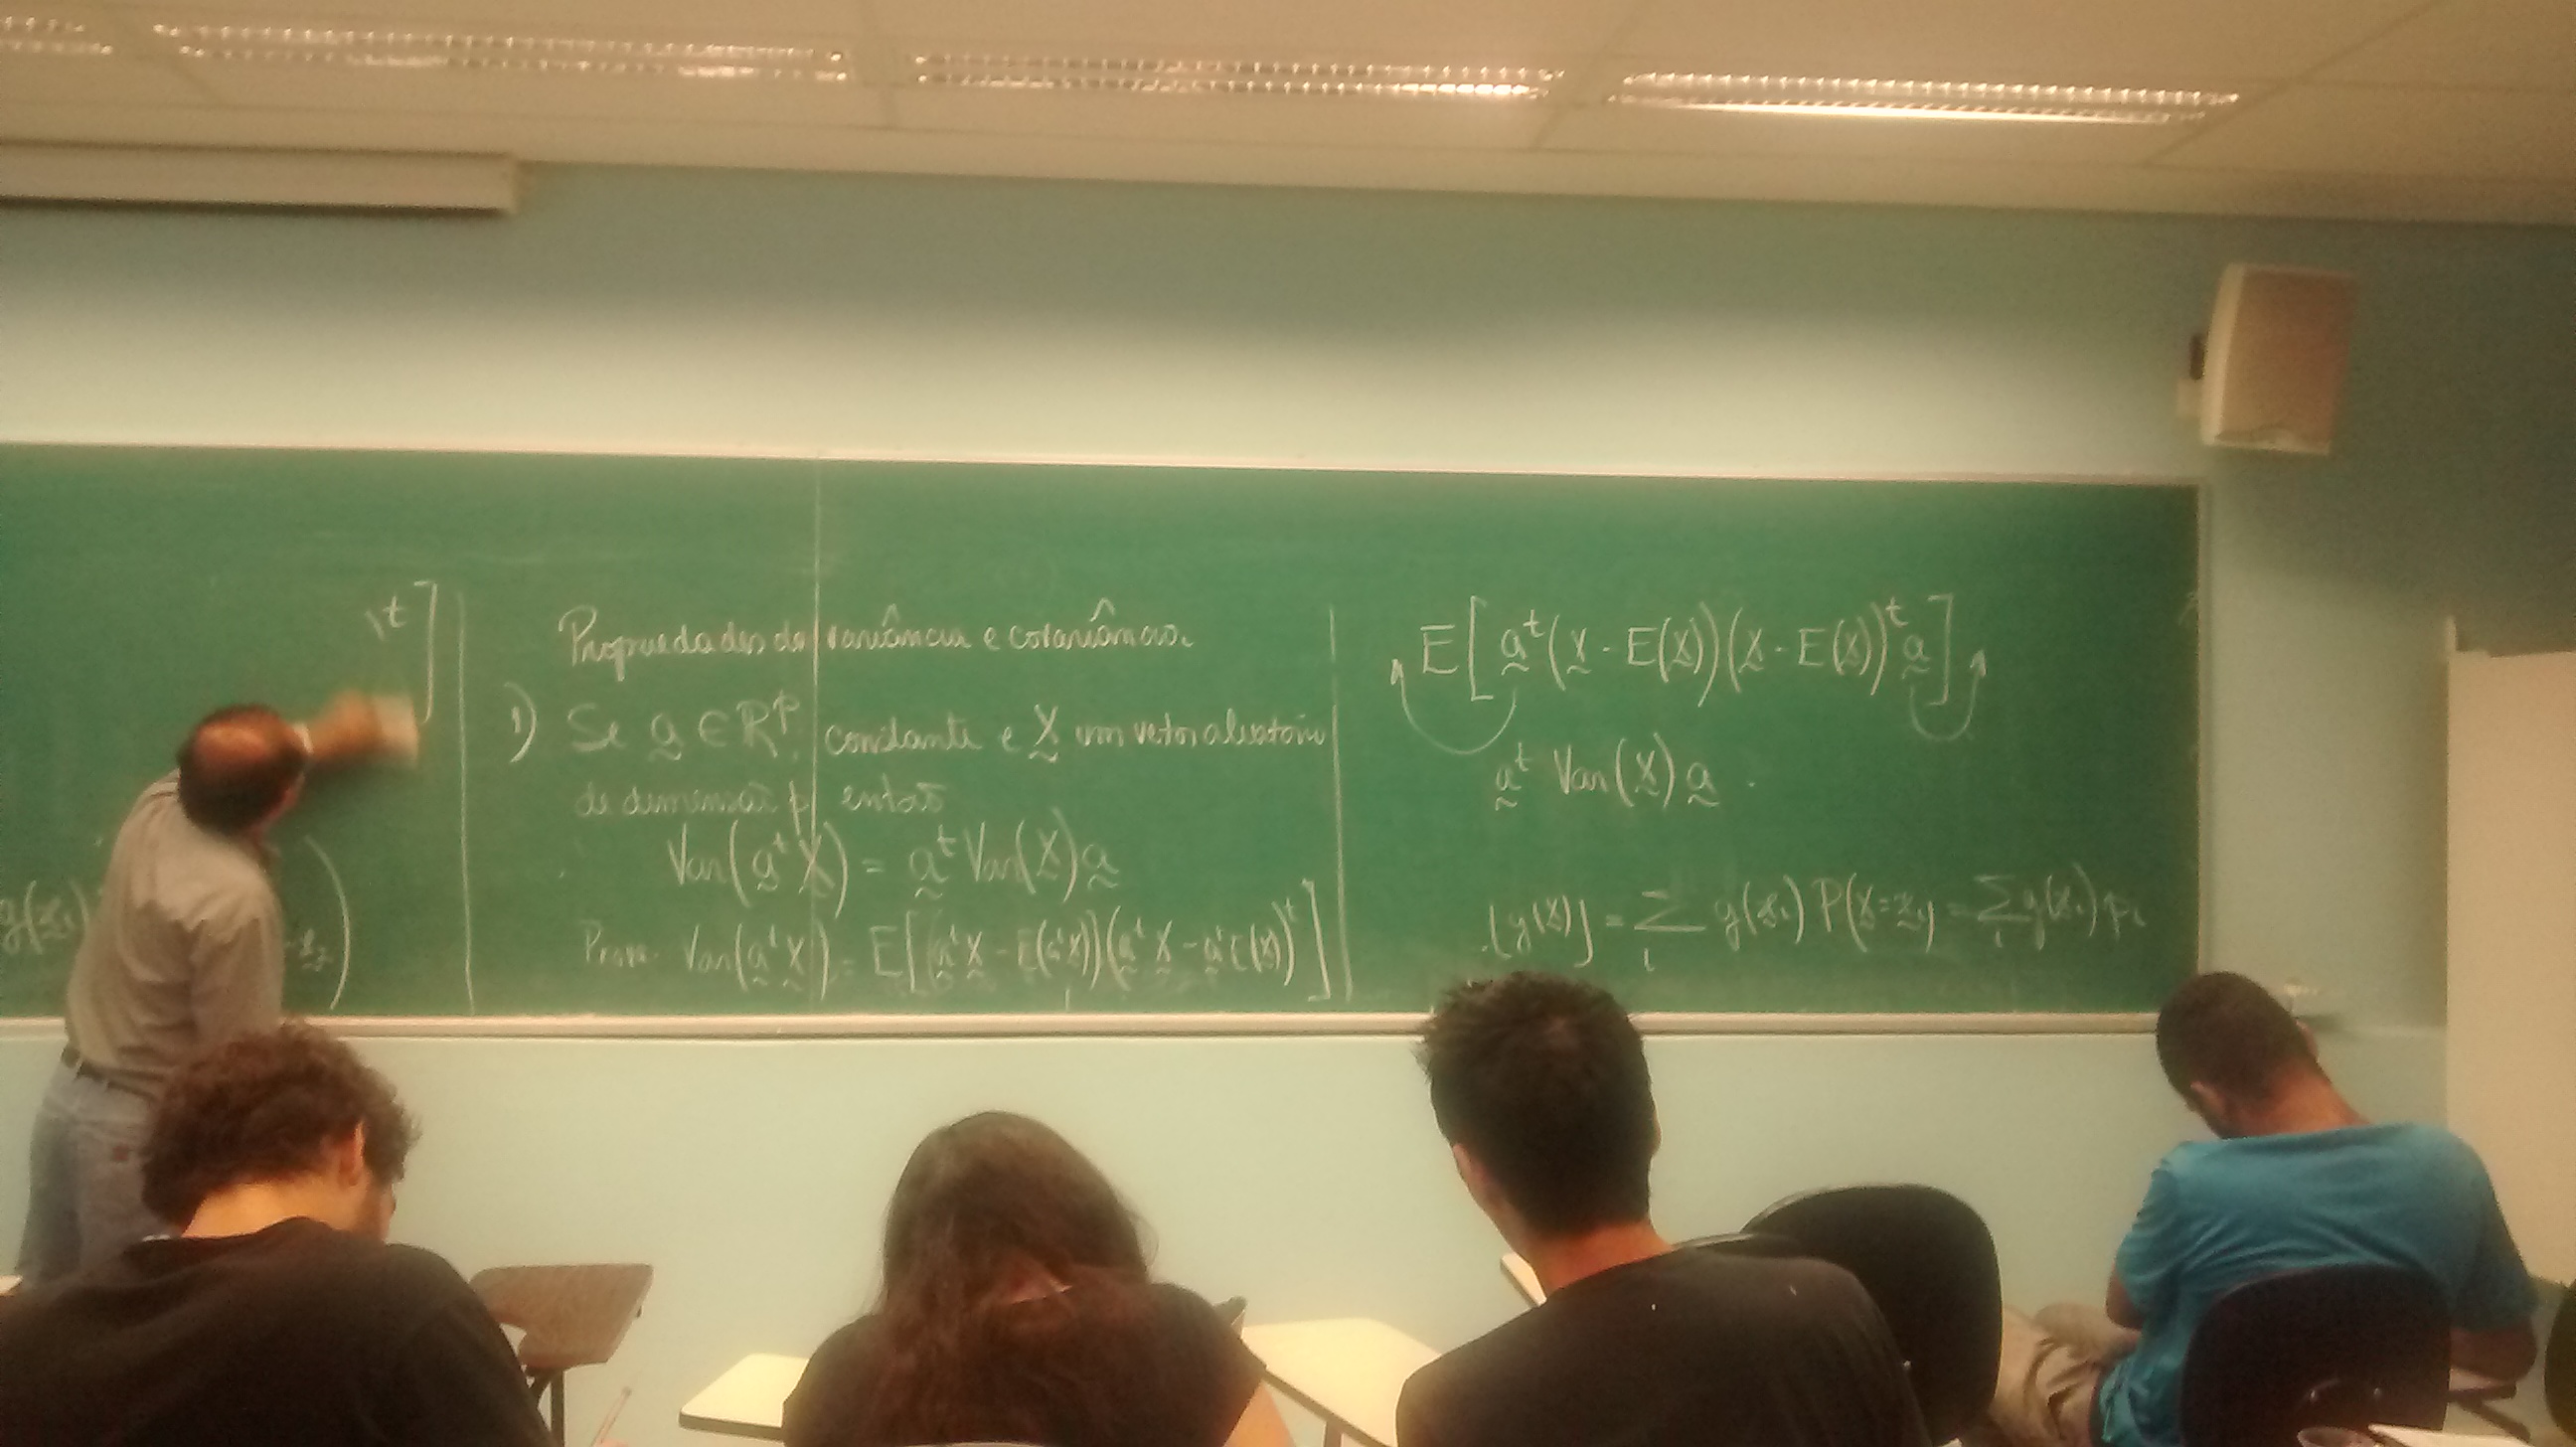 )ᵗ]
g(x₁)
Propriedades da variância e covariância.
1) Se a̰ ∈ ℝᵖ, constante e X̰ um vetor aleatório
de dimensão p, então
Var(a̰ᵗX̰) = a̰ᵗ Var(X̰) a̰
Prova: Var(a̰ᵗX̰) = E[(a̰ᵗX̰ - E(a̰ᵗX̰))(a̰ᵗX̰ - a̰ᵗE(X̰))ᵗ]
E[a̰ᵗ(X̰ - E(X̰))(X̰ - E(X̰))ᵗa̰]
a̰ᵗ Var(X̰) a̰.
[g(X̰)] = Σᵢ g(x̰ᵢ) P(X̰ = x̰ᵢ) = Σᵢ g(x̰ᵢ) pᵢ